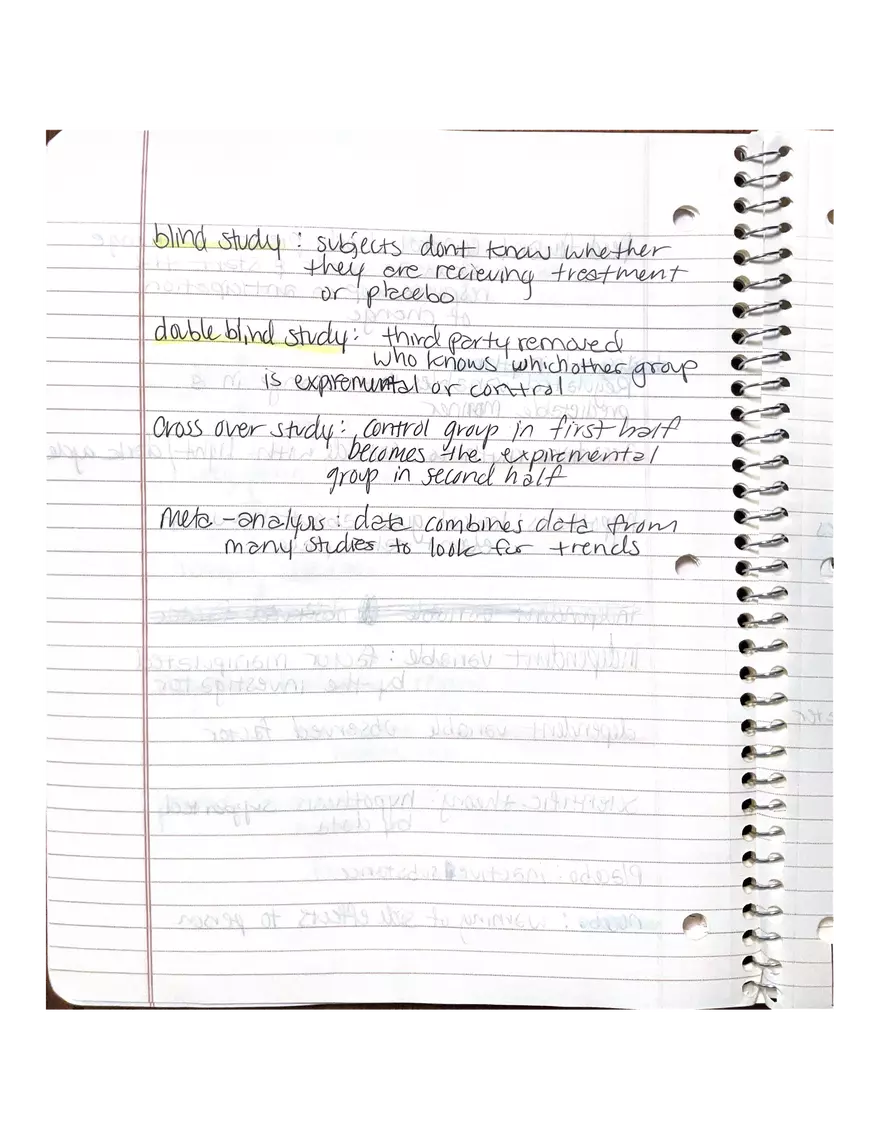 blind study : subjects dont know whether
they are recieving treatment
or placebo
double blind study: third party removed
who knows which other group
is expiremental or control
Cross over study: control group in first half
becomes the expiremental
group in second half
Meta-analysis: data combines data from
many studies to look for trends